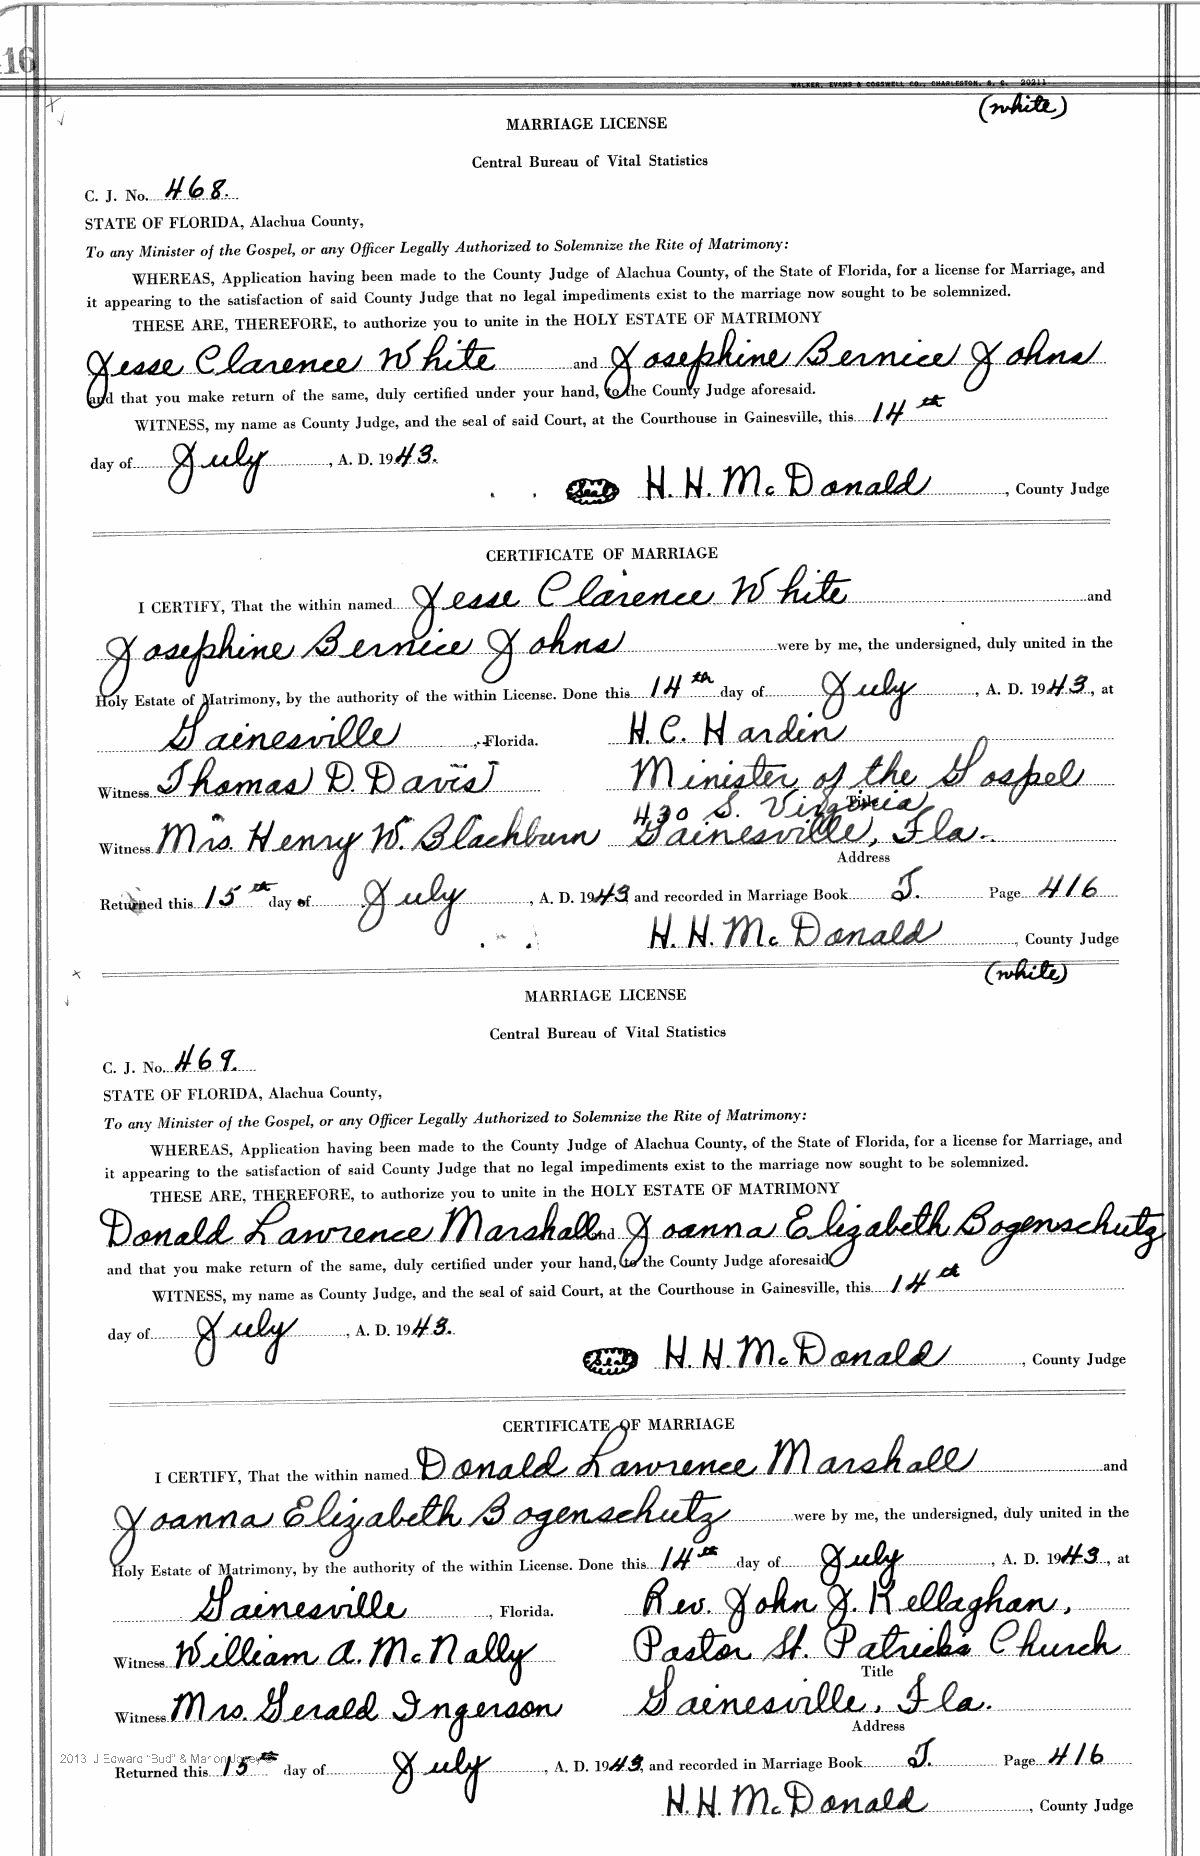 416
WALKER, EVANS & COGSWELL CO., CHARLESTON, S. C. 20211
(white)
MARRIAGE LICENSE
Central Bureau of Vital Statistics
C. J. No. 468.
STATE OF FLORIDA, Alachua County,
To any Minister of the Gospel, or any Officer Legally Authorized to Solemnize the Rite of Matrimony:
WHEREAS, Application having been made to the County Judge of Alachua County, of the State of Florida, for a license for Marriage, and
it appearing to the satisfaction of said County Judge that no legal impediments exist to the marriage now sought to be solemnized.
THESE ARE, THEREFORE, to authorize you to unite in the HOLY ESTATE OF MATRIMONY
Jesse Clarence White and Josephine Bernice Johns
and that you make return of the same, duly certified under your hand, to the County Judge aforesaid.
WITNESS, my name as County Judge, and the seal of said Court, at the Courthouse in Gainesville, this 14th
day of July, A. D. 1943.
Seal H. H. McDonald, County Judge
CERTIFICATE OF MARRIAGE
I CERTIFY, That the within named Jesse Clarence White and
Josephine Bernice Johns were by me, the undersigned, duly united in the
Holy Estate of Matrimony, by the authority of the within License. Done this 14th day of July, A. D. 1943, at
Gainesville, Florida. H. C. Hardin
Witness Thomas D. Davis Minister of the Gospel
Title
430 S. Virginia
Witness Mrs. Henry W. Blackburn Gainesville, Fla.
Address
Returned this 15th day of July, A. D. 1943 and recorded in Marriage Book J. Page 416
H. H. McDonald, County Judge
(white)
MARRIAGE LICENSE
Central Bureau of Vital Statistics
C. J. No. 469.
STATE OF FLORIDA, Alachua County,
To any Minister of the Gospel, or any Officer Legally Authorized to Solemnize the Rite of Matrimony:
WHEREAS, Application having been made to the County Judge of Alachua County, of the State of Florida, for a license for Marriage, and
it appearing to the satisfaction of said County Judge that no legal impediments exist to the marriage now sought to be solemnized.
THESE ARE, THEREFORE, to authorize you to unite in the HOLY ESTATE OF MATRIMONY
Donald Lawrence Marshall and Joanna Elizabeth Bogenschutz
and that you make return of the same, duly certified under your hand, to the County Judge aforesaid
WITNESS, my name as County Judge, and the seal of said Court, at the Courthouse in Gainesville, this 14th
day of July, A. D. 1943.
Seal H. H. McDonald, County Judge
CERTIFICATE OF MARRIAGE
I CERTIFY, That the within named Donald Lawrence Marshall and
Joanna Elizabeth Bogenschutz were by me, the undersigned, duly united in the
Holy Estate of Matrimony, by the authority of the within License. Done this 14th day of July, A. D. 1943, at
Gainesville, Florida. Rev. John J. Kellaghan,
Witness William A. McNally Pastor St. Patrick's Church
Title
Witness Mrs. Gerald Ingerson Gainesville, Fla.
Address
2013 J Edward "Bud" & Marion
Returned this 15th day of July, A. D. 1943, and recorded in Marriage Book J. Page 416
H. H. McDonald, County Judge